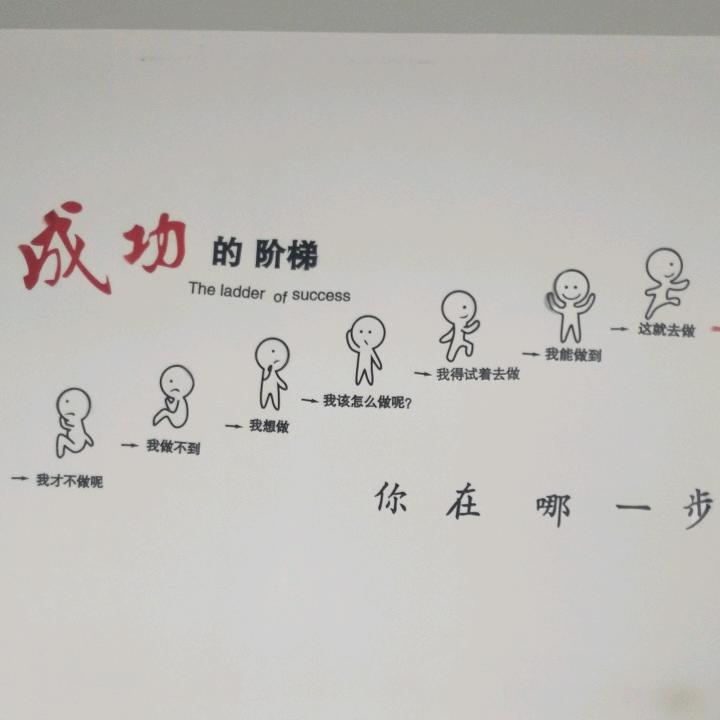 成功的阶梯
The ladder of success
→ 我才不做呢
→ 我做不到
→ 我想做
→ 我该怎么做呢?
→ 我得试着去做
→ 我能做到
→ 这就去做
你在哪一步